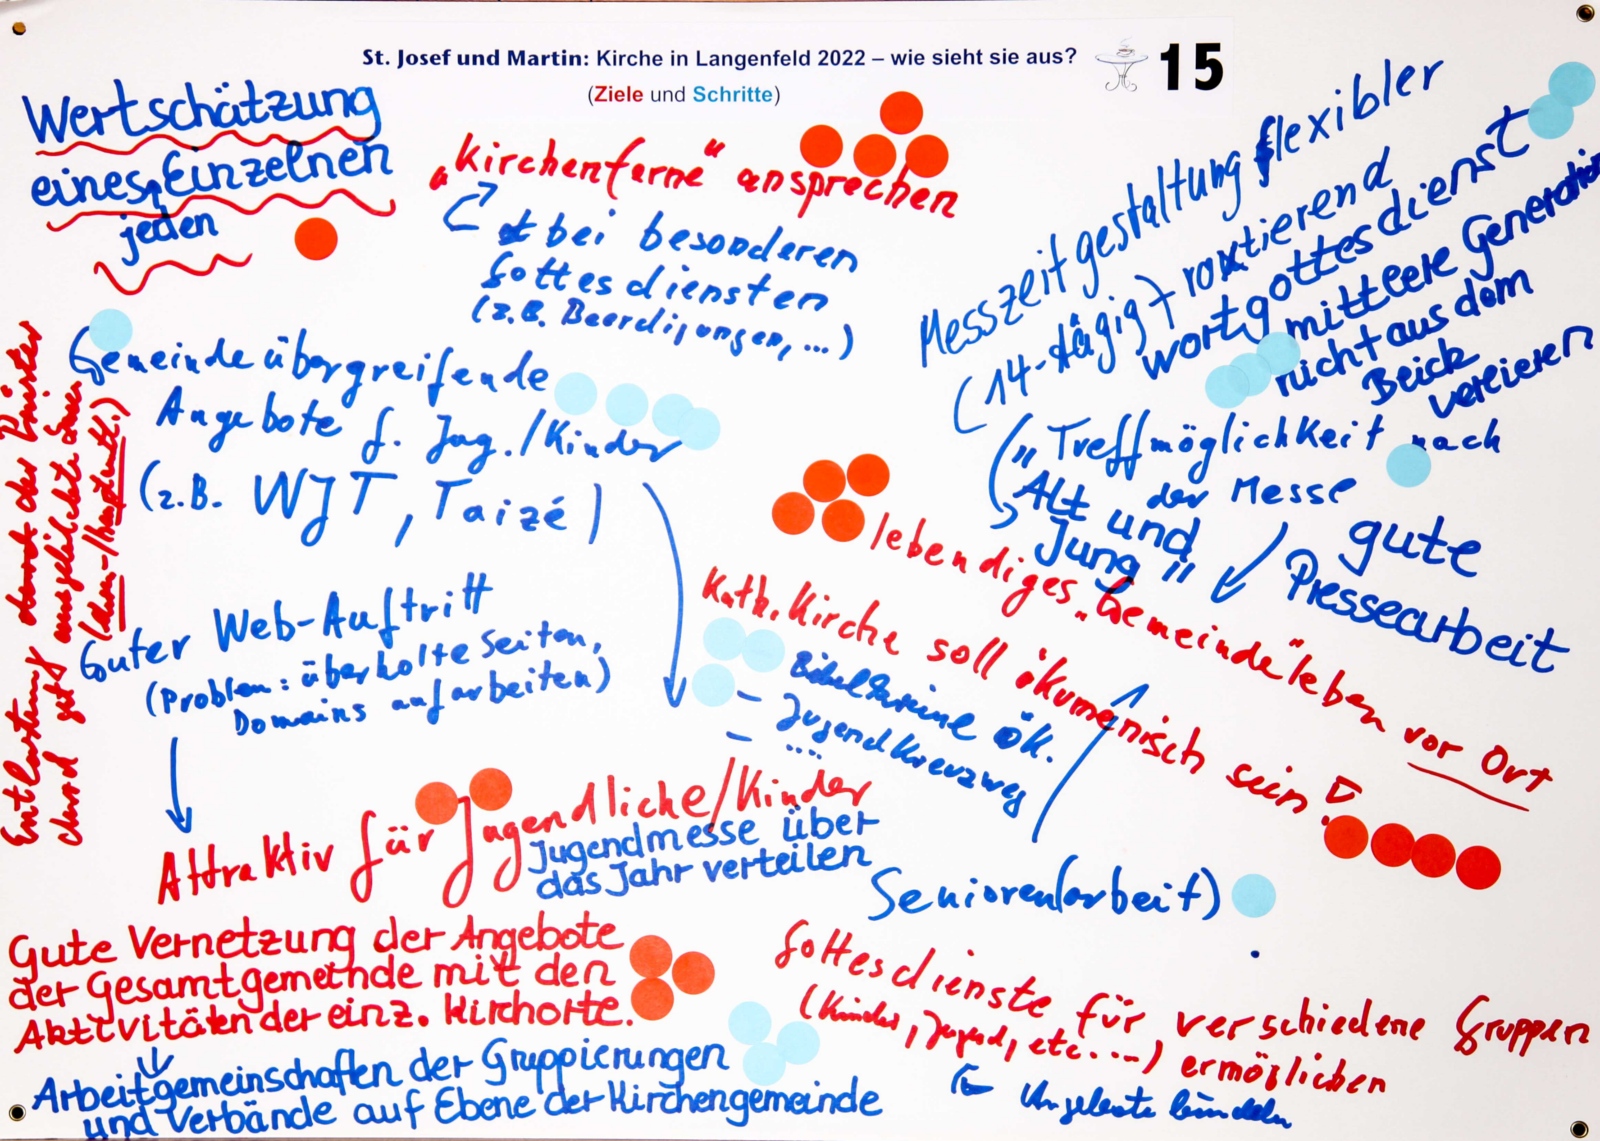 St. Josef und Martin: Kirche in Langenfeld 2022 – wie sieht sie aus?
(Ziele und Schritte)
15
Wertschätzung
eines Einzelnen
jeden
„Kirchenferne“ ansprechen
bei besonderen
Gottesdiensten
(z.B. Beerdigungen, ...)
Messzeitgestaltung flexibler
(14-tägig) rotierend
Wortgottesdienst
mittlere Generation
nicht aus dem
Blick
verlieren
Gemeindeübergreifende
Angebote f. Jug./Kinder
(z.B. WJT, Taizé)
Treffmöglichkeit nach
der Messe
("Alt und
Jung"
gute
Pressearbeit
lebendiges „Gemeinde“leben vor Ort
Kath. Kirche soll ökumenisch sein!
Bibelkreise ök.
- Jugendkreuzweg
- ...
Entlastung der Priester
durch gut ausgebildete
Guter Web-Auftritt
(Problem: überholte Seiten,
Domains aufarbeiten)
Attraktiv für Jugendliche/Kinder
Jugendmesse über
das Jahr verteilen
Senioren(arbeit)
Gute Vernetzung der Angebote
der Gesamtgemeinde mit den
Aktivitäten der einz. Kirchorte.
Arbeitgemeinschaften der Gruppierungen
und Verbände auf Ebene der Kirchengemeinde
Gottesdienste für verschiedene Gruppen
(Kinder, Jugend, etc....) ermöglichen
Angebote bündeln